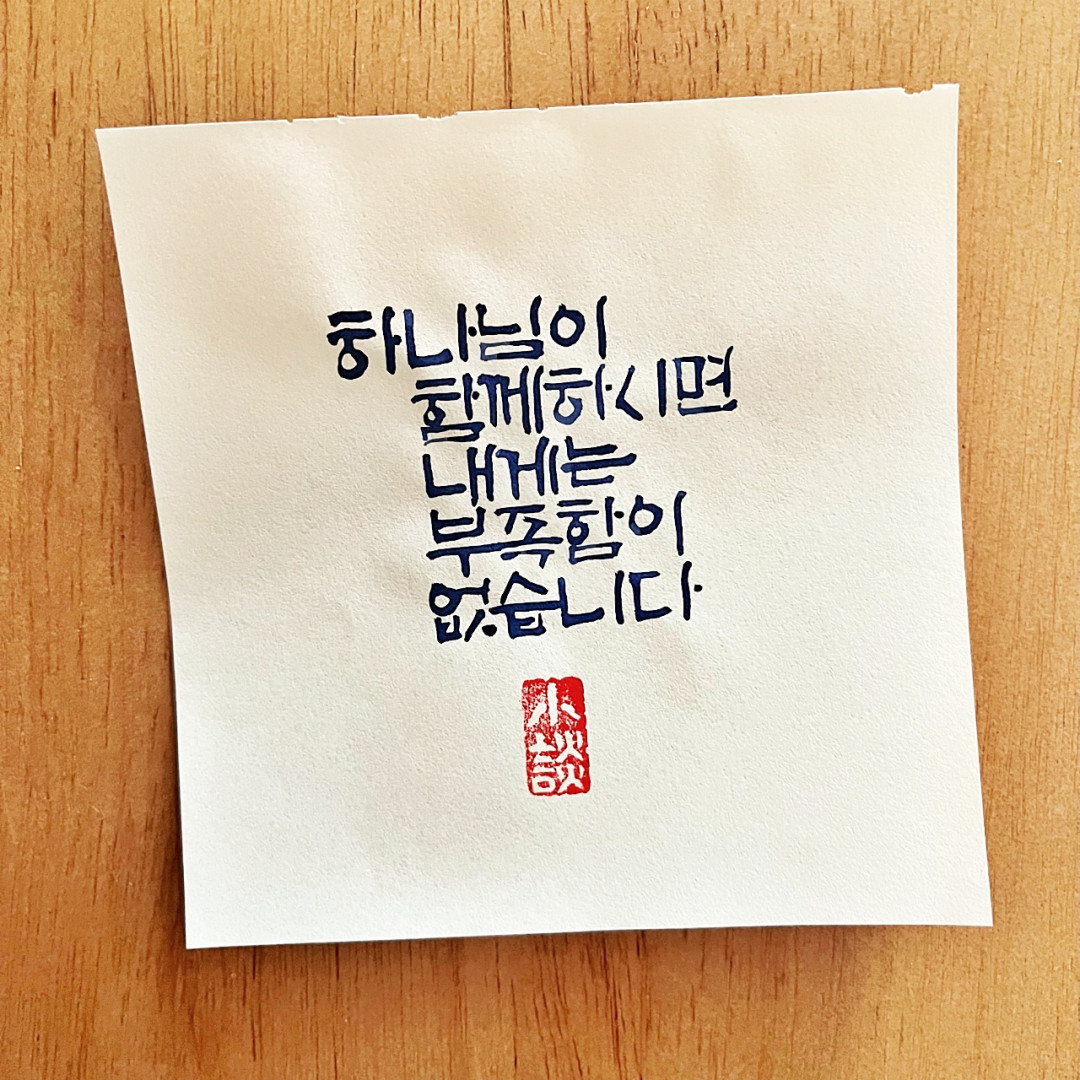 하나님이
함께하시면
내게는
부족함이
없습니다
小談